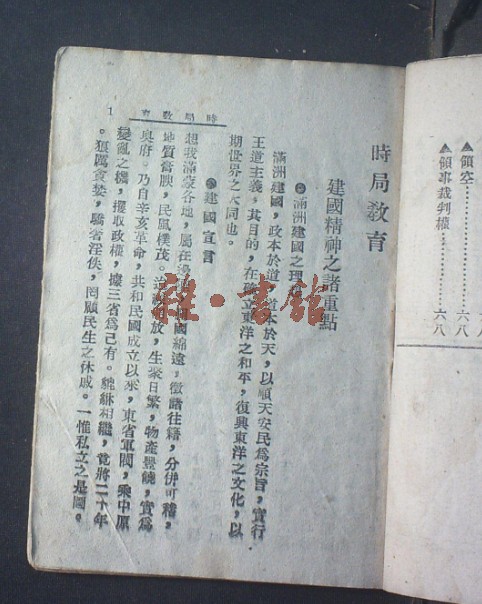 ▲領空……六八
▲領事裁判權……六八
時局教育
建國精神之諸重點
●滿洲建國之理
滿洲建國,政本於道,道本於天,以順天安民爲宗旨,實行
王道主義,其目的,在確立東洋之和平,復興東洋之文化,以
期世界之大同也。
●建國宣言
想我滿蒙各地,屬在邊國綿遠,徵諸往籍,分併可稽,
地質膏腴,民風樸茂。迨放,生聚日繁,物產豐饒,實爲
奧府。乃自辛亥革命,共和民國成立以來,東省軍閥,乘中原
變亂之機,攫取政權,據三省爲己有。貔貅相繼,竟將二十年
。狼厲貪婪,驕奢淫佚,罔顧民生之休戚。一惟私立之是圖。
時局教育
1
雜·書館